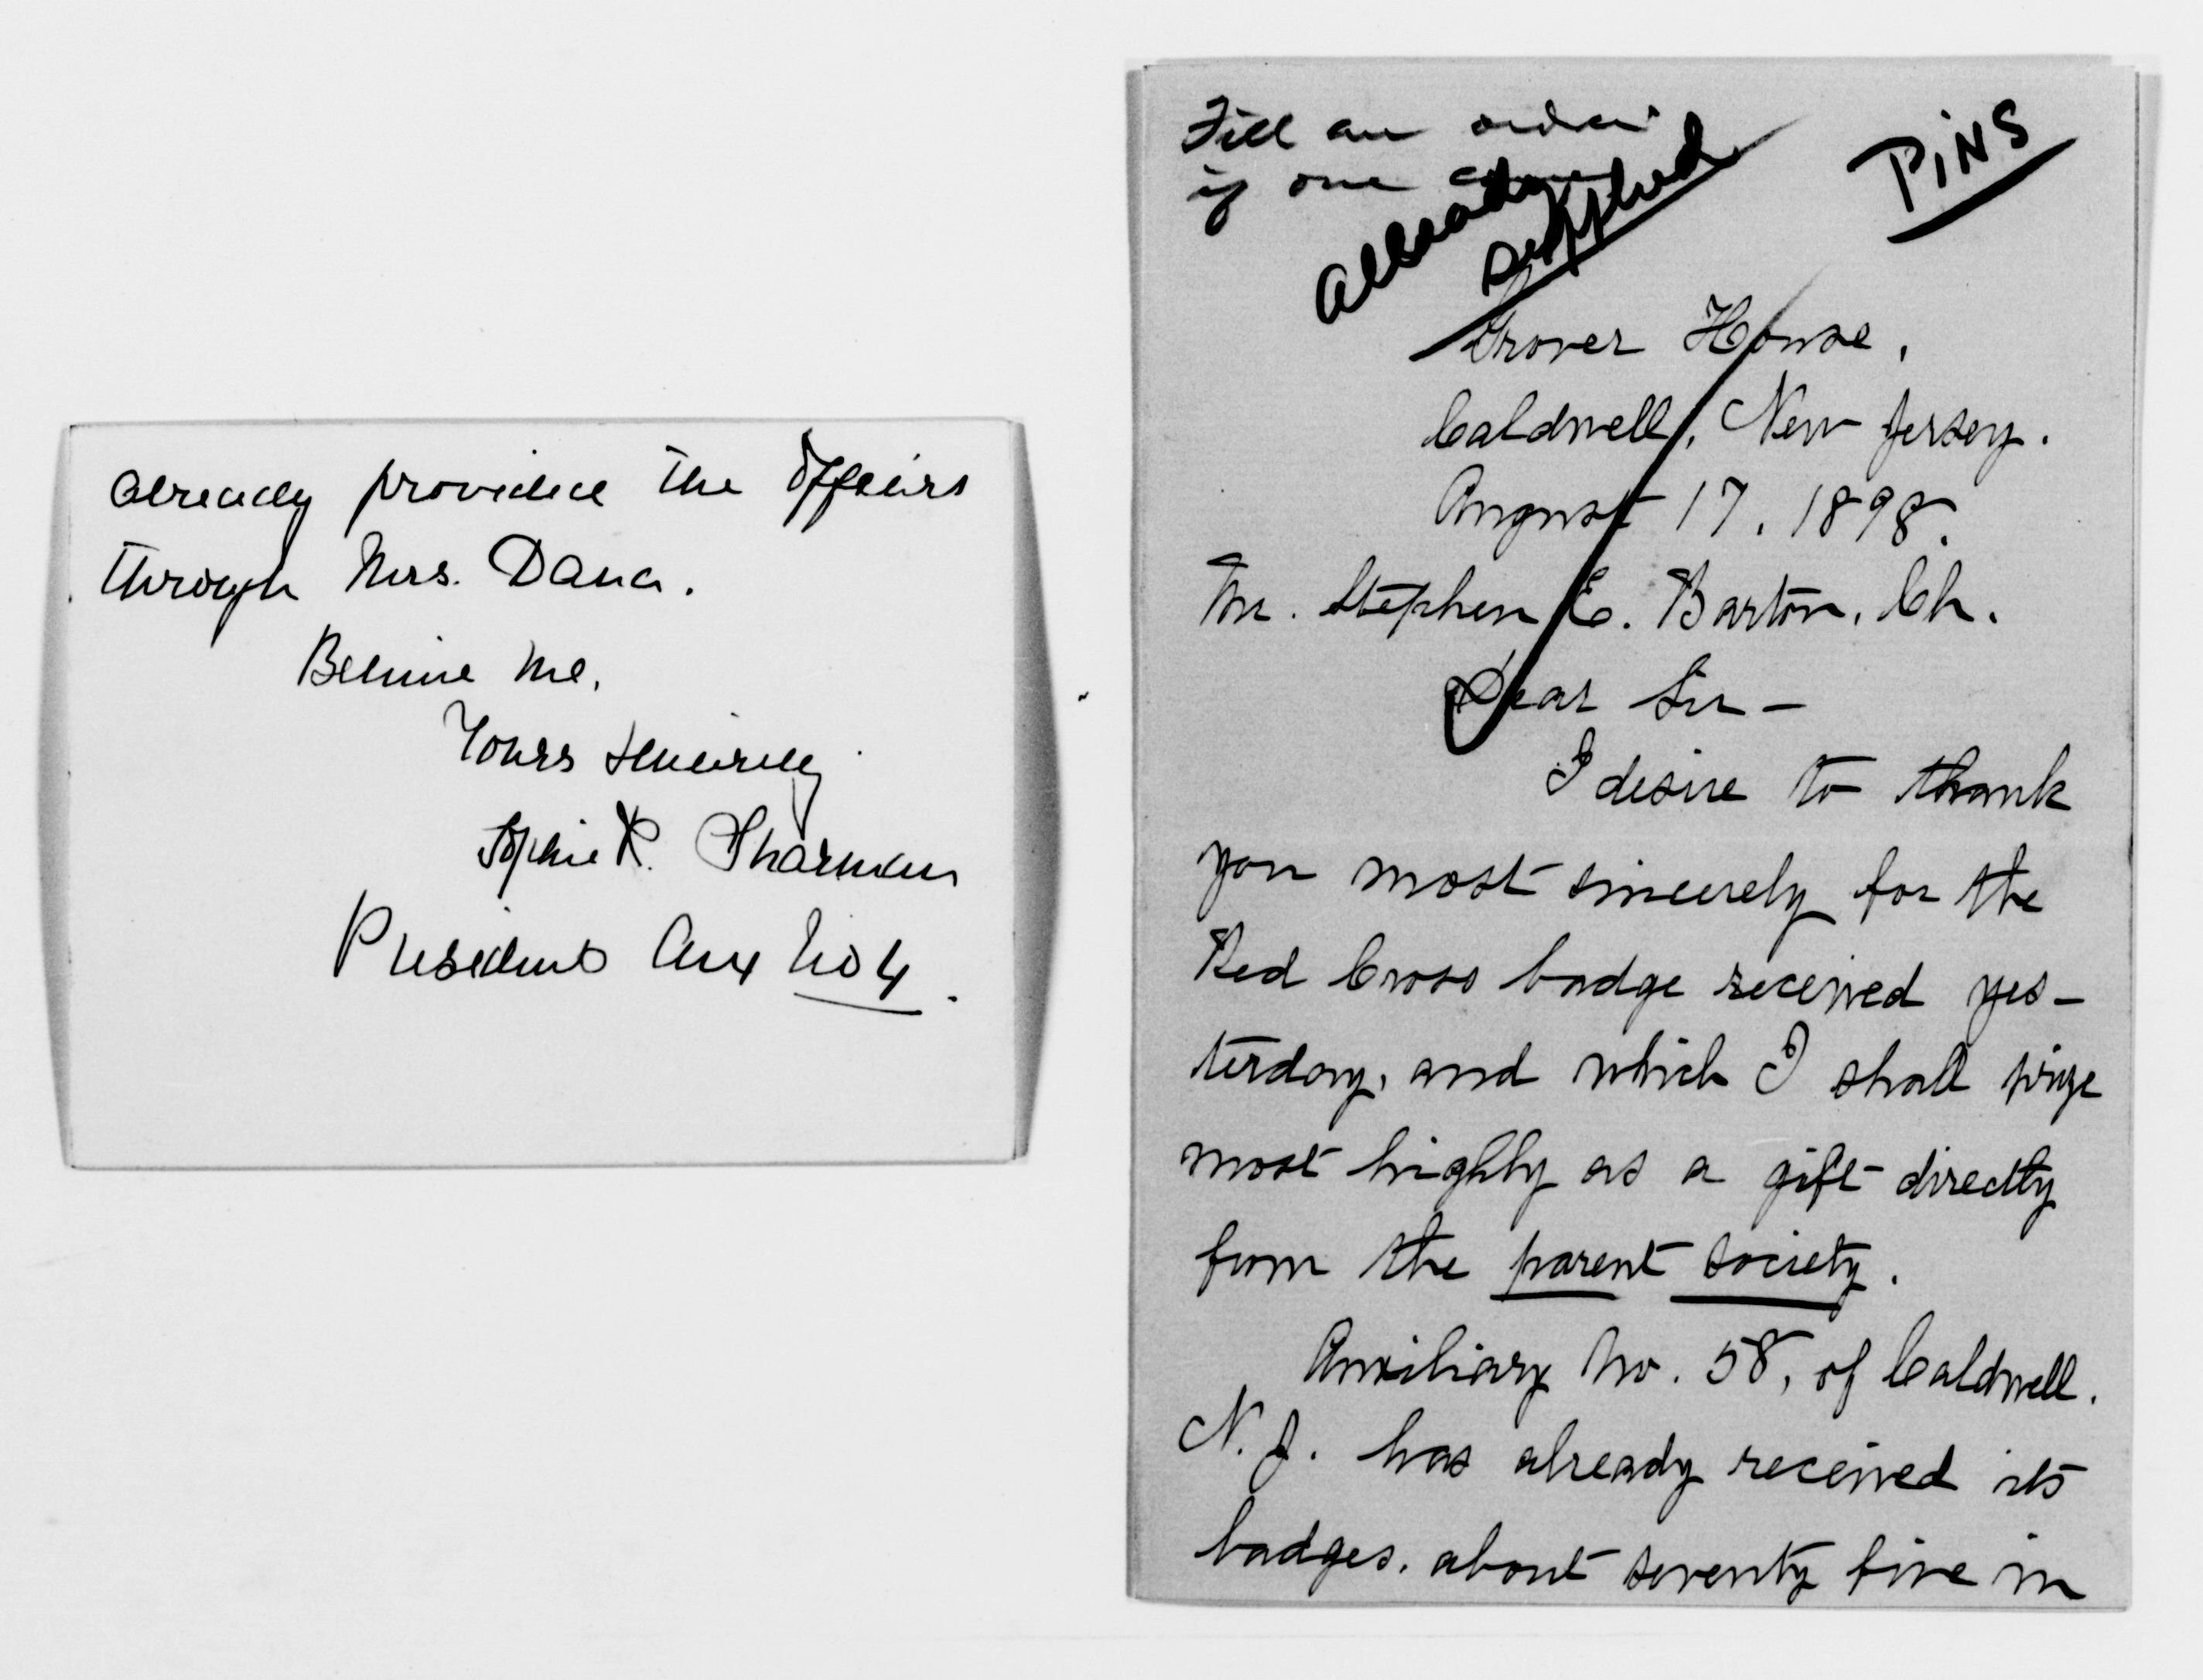 already provided the officers
through Mrs. Dana.
Believe me,
Yours sincerely
Sophie R. Sharman
President Aux No 4.
Fill an order
if one
Already
supplied
PINS
Grover House,
Caldwell, New Jersey.
August 17, 1898.
Mr. Stephen E. Barton, Ch.
Dear Sir—
I desire to thank
you most sincerely for the
Red Cross badge received yes-
terday, and which I shall prize
most highly as a gift directly
from the parent society.
Auxiliary No. 58, of Caldwell,
N. J. has already received its
badges, about seventy five in